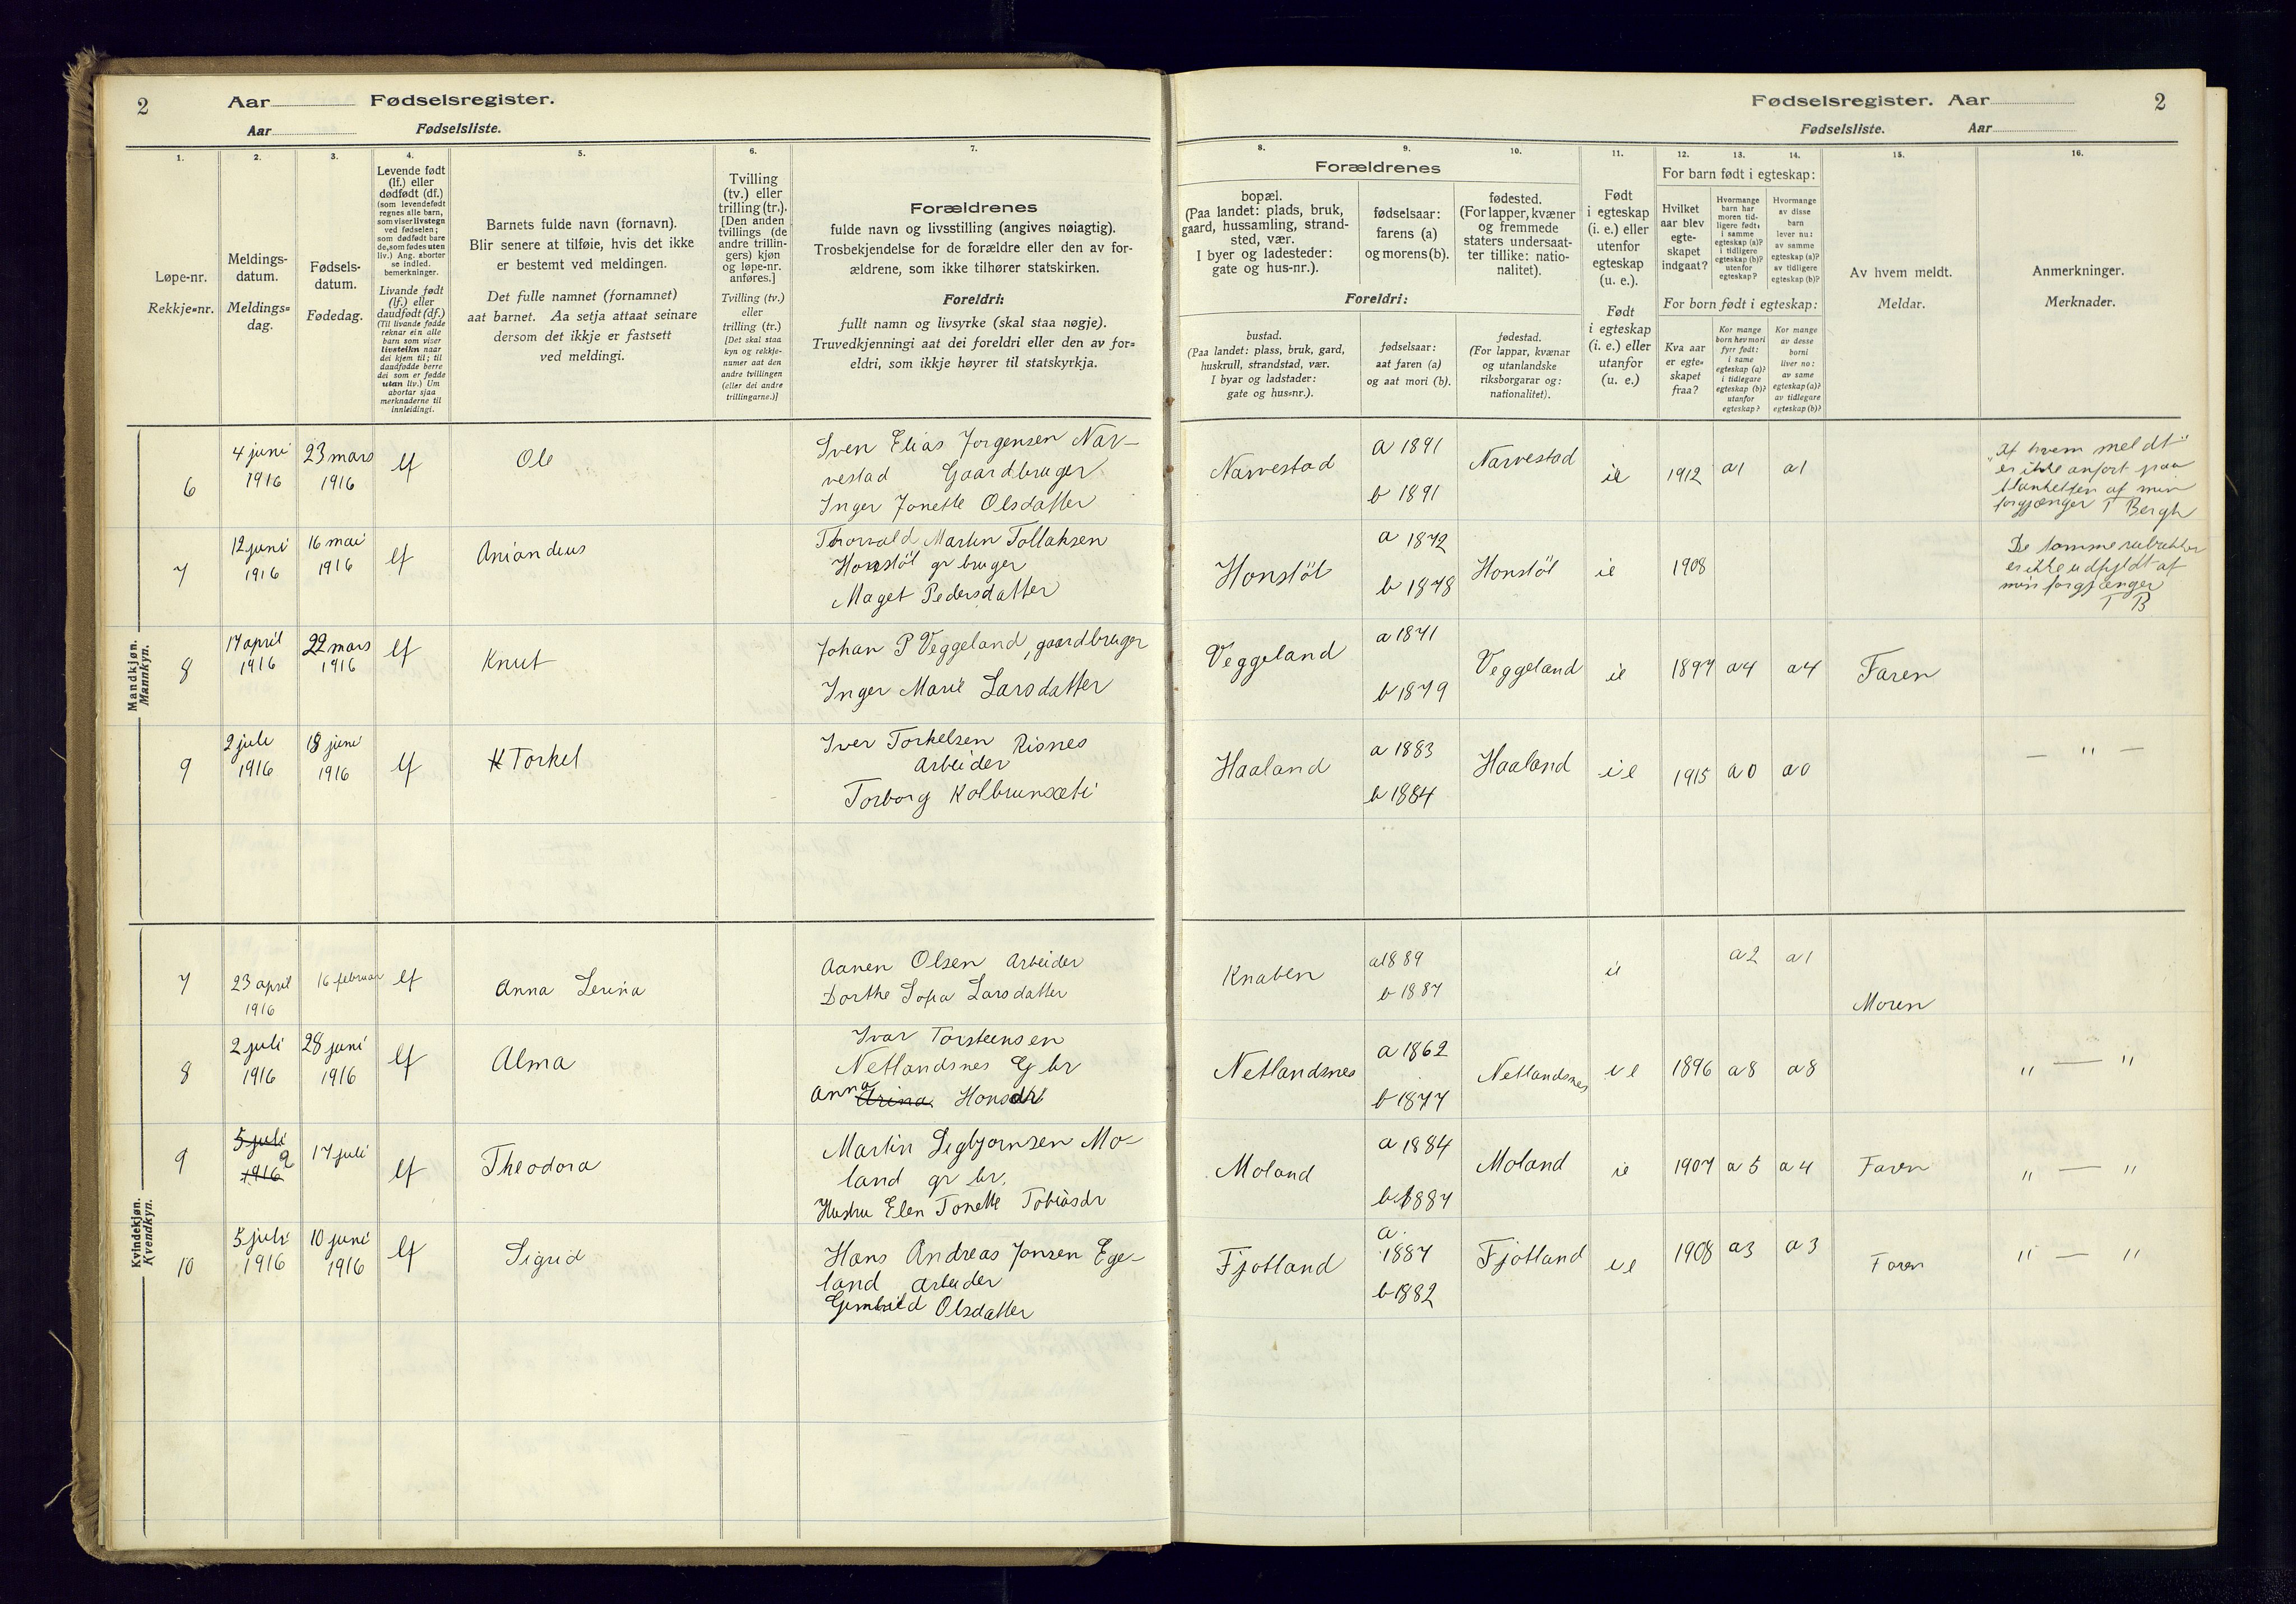 2
Aar Fødselsregister.
Aar Fødselsliste.
1.
Løpe-nr.
Rekkje=nr.
2.
Meldings-
datum.
Meldings=
dag.
3.
Fødsels-
datum.
Fødedag.
4.
Levende født
(lf.) eller
dødfødt (df.)
(som levendefødt
regnes alle barn,
som viser livstegn
ved fødselen;
som dødfødt bare
de, som fødes uten
liv.) Ang. aborter
se indled.
bemerkninger.
Livande født
(lf.) eller
daudfødt (df.)
(Til livande fødde
reknar ein alle
barn som viser
livsteikn naar
dei kjem til; til
daudfødde berre
dei som er fødde
utan liv.) Um
abortar sjaa
merknaderne til
innleidingi.
5.
Barnets fulde navn (fornavn).
Blir senere at tilføie, hvis det ikke
er bestemt ved meldingen.
Det fulle namnet (fornamnet)
aat barnet. Aa setja attaat seinare
dersom det ikkje er fastsett
ved meldingi.
6.
Tvilling
(tv.) eller
trilling (tr.).
[Den anden
tvillings (de
andre trillin-
gers) kjøn
og løpe-nr.
anføres.]
Tvilling (tv.)
eller
trilling (tr.)
[Det skal staa
kyn og rekkje-
numer aat den
andre tvillingen
(eller dei andre
trillingarne.)]
7.
Forældrenes
fulde navn og livsstilling (angives nøiagtig).
Trosbekjendelse for de forældre eller den av for-
ældrene, som ikke tilhører statskirken.
Foreldri:
fullt namn og livsyrke (skal staa nøgje).
Truvedkjenningi aat dei foreldri eller den av for=
eldri, som ikkje høyrer til statskyrkja.
Mandkjøn.
Mannkyn.
6
4 juni
1916
23 mars
1916
lf
Ole
Sven Elias Jorgensen Nar-
vestad Gaardbruger
Inger Jonette Olsdatter
7
12 juni
1916
16 mai
1916
lf
Aniandius
Thorvald Martin Tollaksen
Honstöl gr bruger
Maget Pedersdatter
8
17 april
1916
22 mars
1916
lf
Knut
Johan P Veggeland, gaardbruger
Inger Marie Larsdatter
9
2 juli
1916
18 juni
1916
lf
Torkel
Iver Torkelsen Risnes
Arbeider
Torborg Kolbrunsæti
Kvindekjøn.
Kvendkyn.
7
23 april
1916
16 februar
lf
Anna Serina
Aanen Olsen Arbeider
Dorthe Sofia Larsdatter
8
2 juli
1916
28 juni
1916
lf
Alma
Ivar Torsteensen
Netlandsnes G br
Anna Arina Honsdr
9
5 juli
1916
17 juli
lf
Theodora
Martin Sigbjornsen Mo-
land gr br.
Hustru Elen Tonette Tobiasdr
10
5 juli
1916
10 juni
1916
lf
Sigrid
Hans Andreas Jonsen Ege-
land Arbeider
Gunhild Olsdatter
Fødselsregister. Aar
2
Fødselsliste. Aar
8.
Forældrenes
bopæl.
(Paa landet: plads, bruk,
gaard, hussamling, strand-
sted, vær.
I byer og ladesteder:
gate og hus-nr.).
Foreldri:
bustad.
(Paa landet: plass, bruk, gard,
huskrull, strandstad, vær.
I byar og ladstader:
gate og hus=nr.).
9.
fødselsaar:
farens (a)
og morens (b).
fødselsaar:
aat faren (a)
og aat mori (b).
10.
fødested.
(For lapper, kvæner
og fremmede
staters undersaat-
ter tillike: natio-
nalitet).
fødestad.
(For lappar, kvænar
og utanlandske
riksborgarar og:
nationalitet).
11.
Født
i egteskap
(i. e.) eller
utenfor
egteskap
(u. e.).
Født
i egteskap
(i. e.) eller
utanfor
(u. e.)
For barn født i egteskap:
12.
Hvilket
aar blev
egte-
skapet
indgaat?
13.
Hvormange
barn har
moren tid-
ligere født:
i samme
egteskap (a)?
i tidligere
egteskap (b)?
utenfor
egteskap?
14.
Hvormange
av disse
barn
lever nu:
av samme
egteskap (a)?
av tidligere
egteskap (b)?
For born født i egteskap:
Kva aar
er egte-
skapet
fraa?
Kor mange
born hev mori
fyrr født:
i same
egteskap (a)?
i tidlegare
egteskap (b)?
utanfor
egteskap?
Kor mange
av desse
borni
liver no:
av same
egteskap (a)?
av tidlegare
egteskap (b)?
15.
Av hvem meldt.
Meldar.
16.
Anmerkninger.
Merknader.
Narvestad
a 1891
b 1891
Narvestad
ie
1912
a1
a1
"Af hvem meldt"
er ikke anfort paa
blanketten af min
forgjænger T Bergh
Honstöl
a 1872
b 1878
Honstöl
ie
1908
De tomme rubrikker
er ikke udfyldt af
min forgjænger
T B
Veggeland
a 1871
b 1879
Veggeland
ie
1897
a4
a4
Faren
Haaland
a 1883
b 1884
Haaland
ie
1915
a0
a0
— " —
Knaben
a 1889
b 1887
ie
a2
a1
Moren
Netlandsnes
a 1862
b 1877
Netlandsnes
ie
1896
a8
a8
" — "
Moland
a 1884
b 1887
Moland
ie
1907
a5
a4
Faren
" — "
Fjotland
a.
1887
b 1882
Fjotland
ie
1908
a3
a3
Faren
" — "